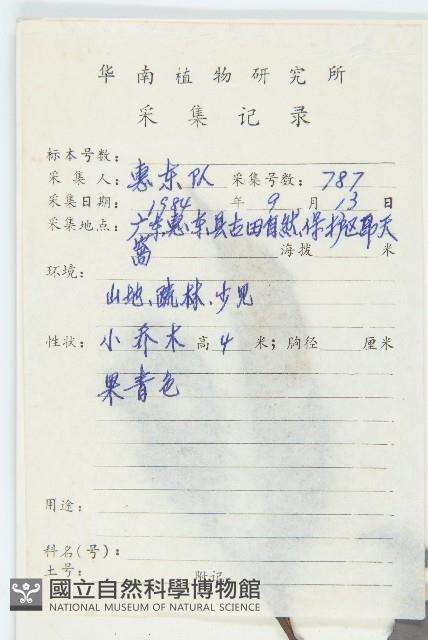 华南植物研究所
采集记录
标本号数：
采集人：惠东队 采集号数：787
采集日期：1984年9月13日
采集地点：广东惠东县古田自然保护区吊天
窝 海拔 米
环境：
山地、疏林、少见
性状：小乔木高4米；胸径 厘米
果青色
用途：
科名(号)：
土号： 附记
國立自然科學博物館
NATIONAL MUSEUM OF NATURAL SCIENCE